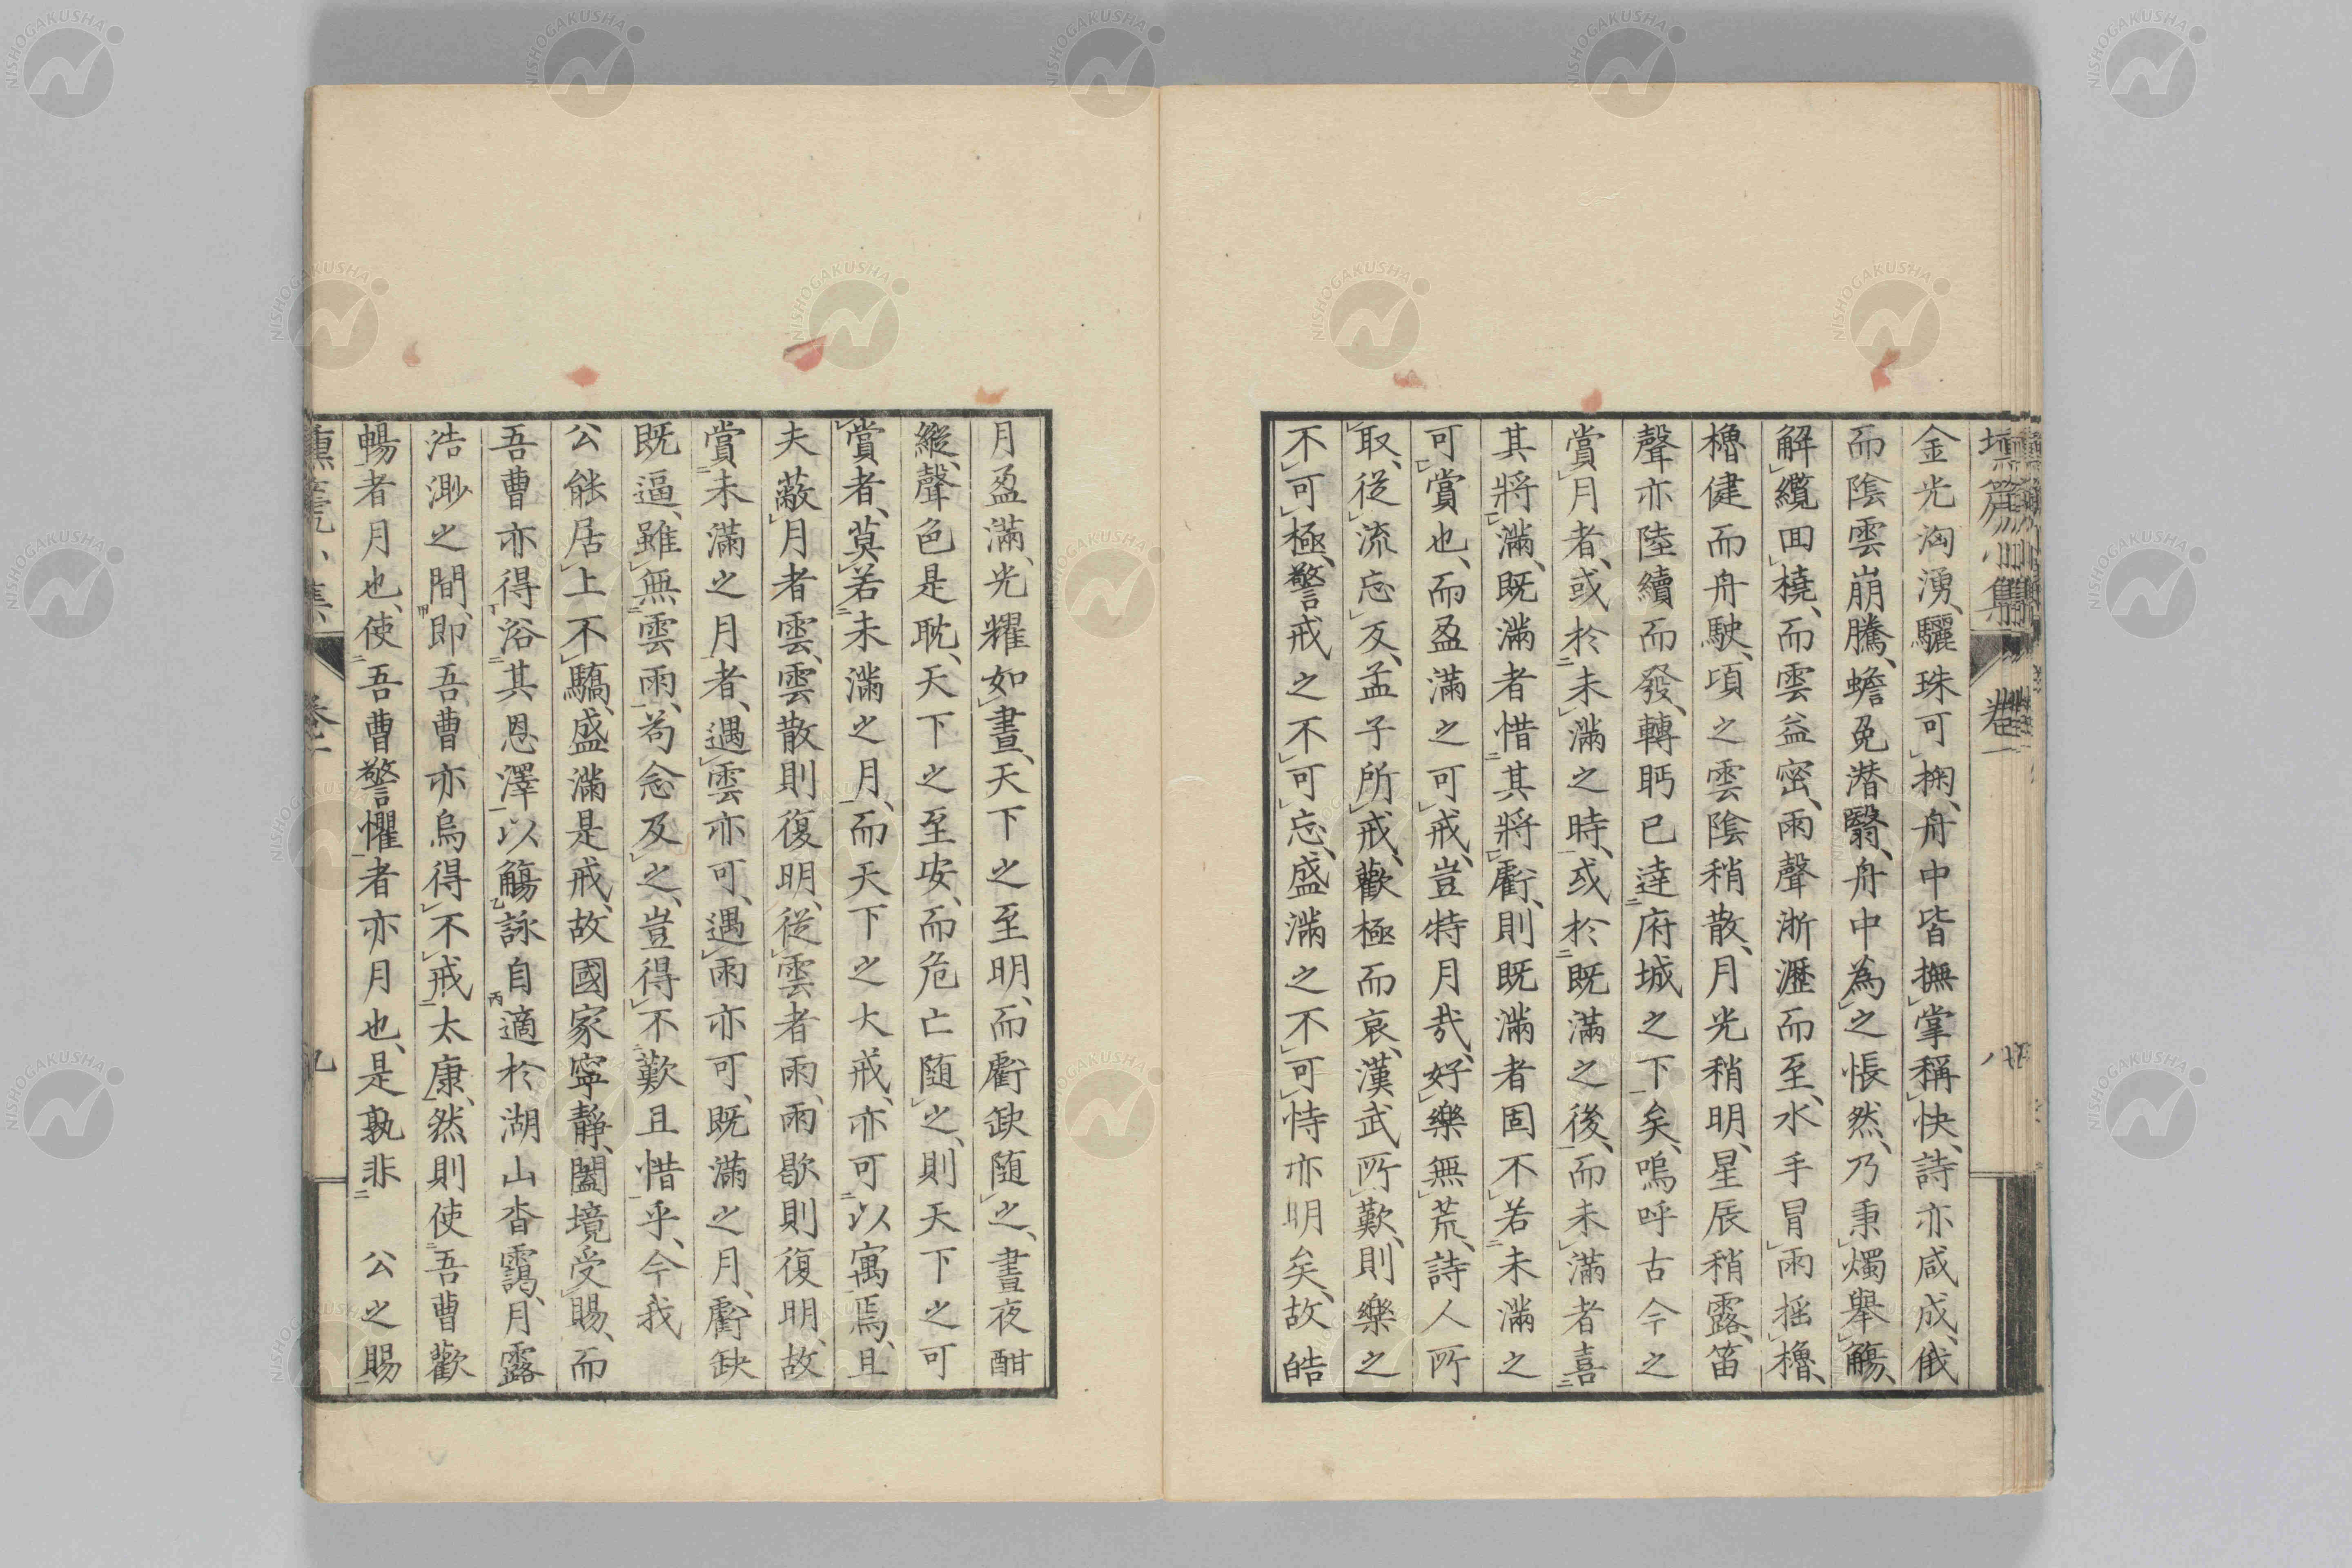 壎篪小集 卷一 八
金光洶湧、驪珠可掬、舟中皆撫掌稱快、詩亦咸成、俄
而陰雲崩騰、蟾兔潜翳、舟中為之悵然、乃秉燭舉觴、
解纜回橈、而雲益密、雨聲淅瀝而至、水手冒雨揺櫓、
櫓健而舟駛、頃之雲陰稍散、月光稍明、星辰稍露、笛
聲亦陸續而發、轉眄已達府城之下矣、嗚呼古今之
賞月者、或於未滿之時、或於既滿之後、而未滿者喜
其將滿、既滿者惜其將虧、則既滿者固不若未滿之
可賞也、而盈滿之可戒、豈特月哉、好樂無荒、詩人所
取、從流忘反、孟子所戒、歡極而哀、漢武所歎、則樂之
不可極、警戒之不可忘、盛滿之不可恃亦明矣、故皓
月盈滿、光耀如晝、天下之至明、而虧缺随之、晝夜酣
縱、聲色是耽、天下之至安、而危亡随之、則天下之可
賞者、莫若未滿之月、而天下之大戒、亦可以寓焉、且
夫蔽月者雲、雲散則復明、從雲者雨、雨歇則復明、故
賞未滿之月者、遇雲亦可、遇雨亦可、既滿之月、虧缺
既逼、雖無雲雨、苟念及之、豈得不歎且惜乎、今我
公能居上不驕、盛滿是戒、故國家寧靜、闔境受賜、而
吾曹亦得浴其恩澤以觴詠自適於湖山杳靄、月露
浩渺之間、即吾曹亦烏得不戒太康、然則使吾曹歡
暢者月也、使吾曹警懼者亦月也、是孰非 公之賜
壎篪小集 卷一 九